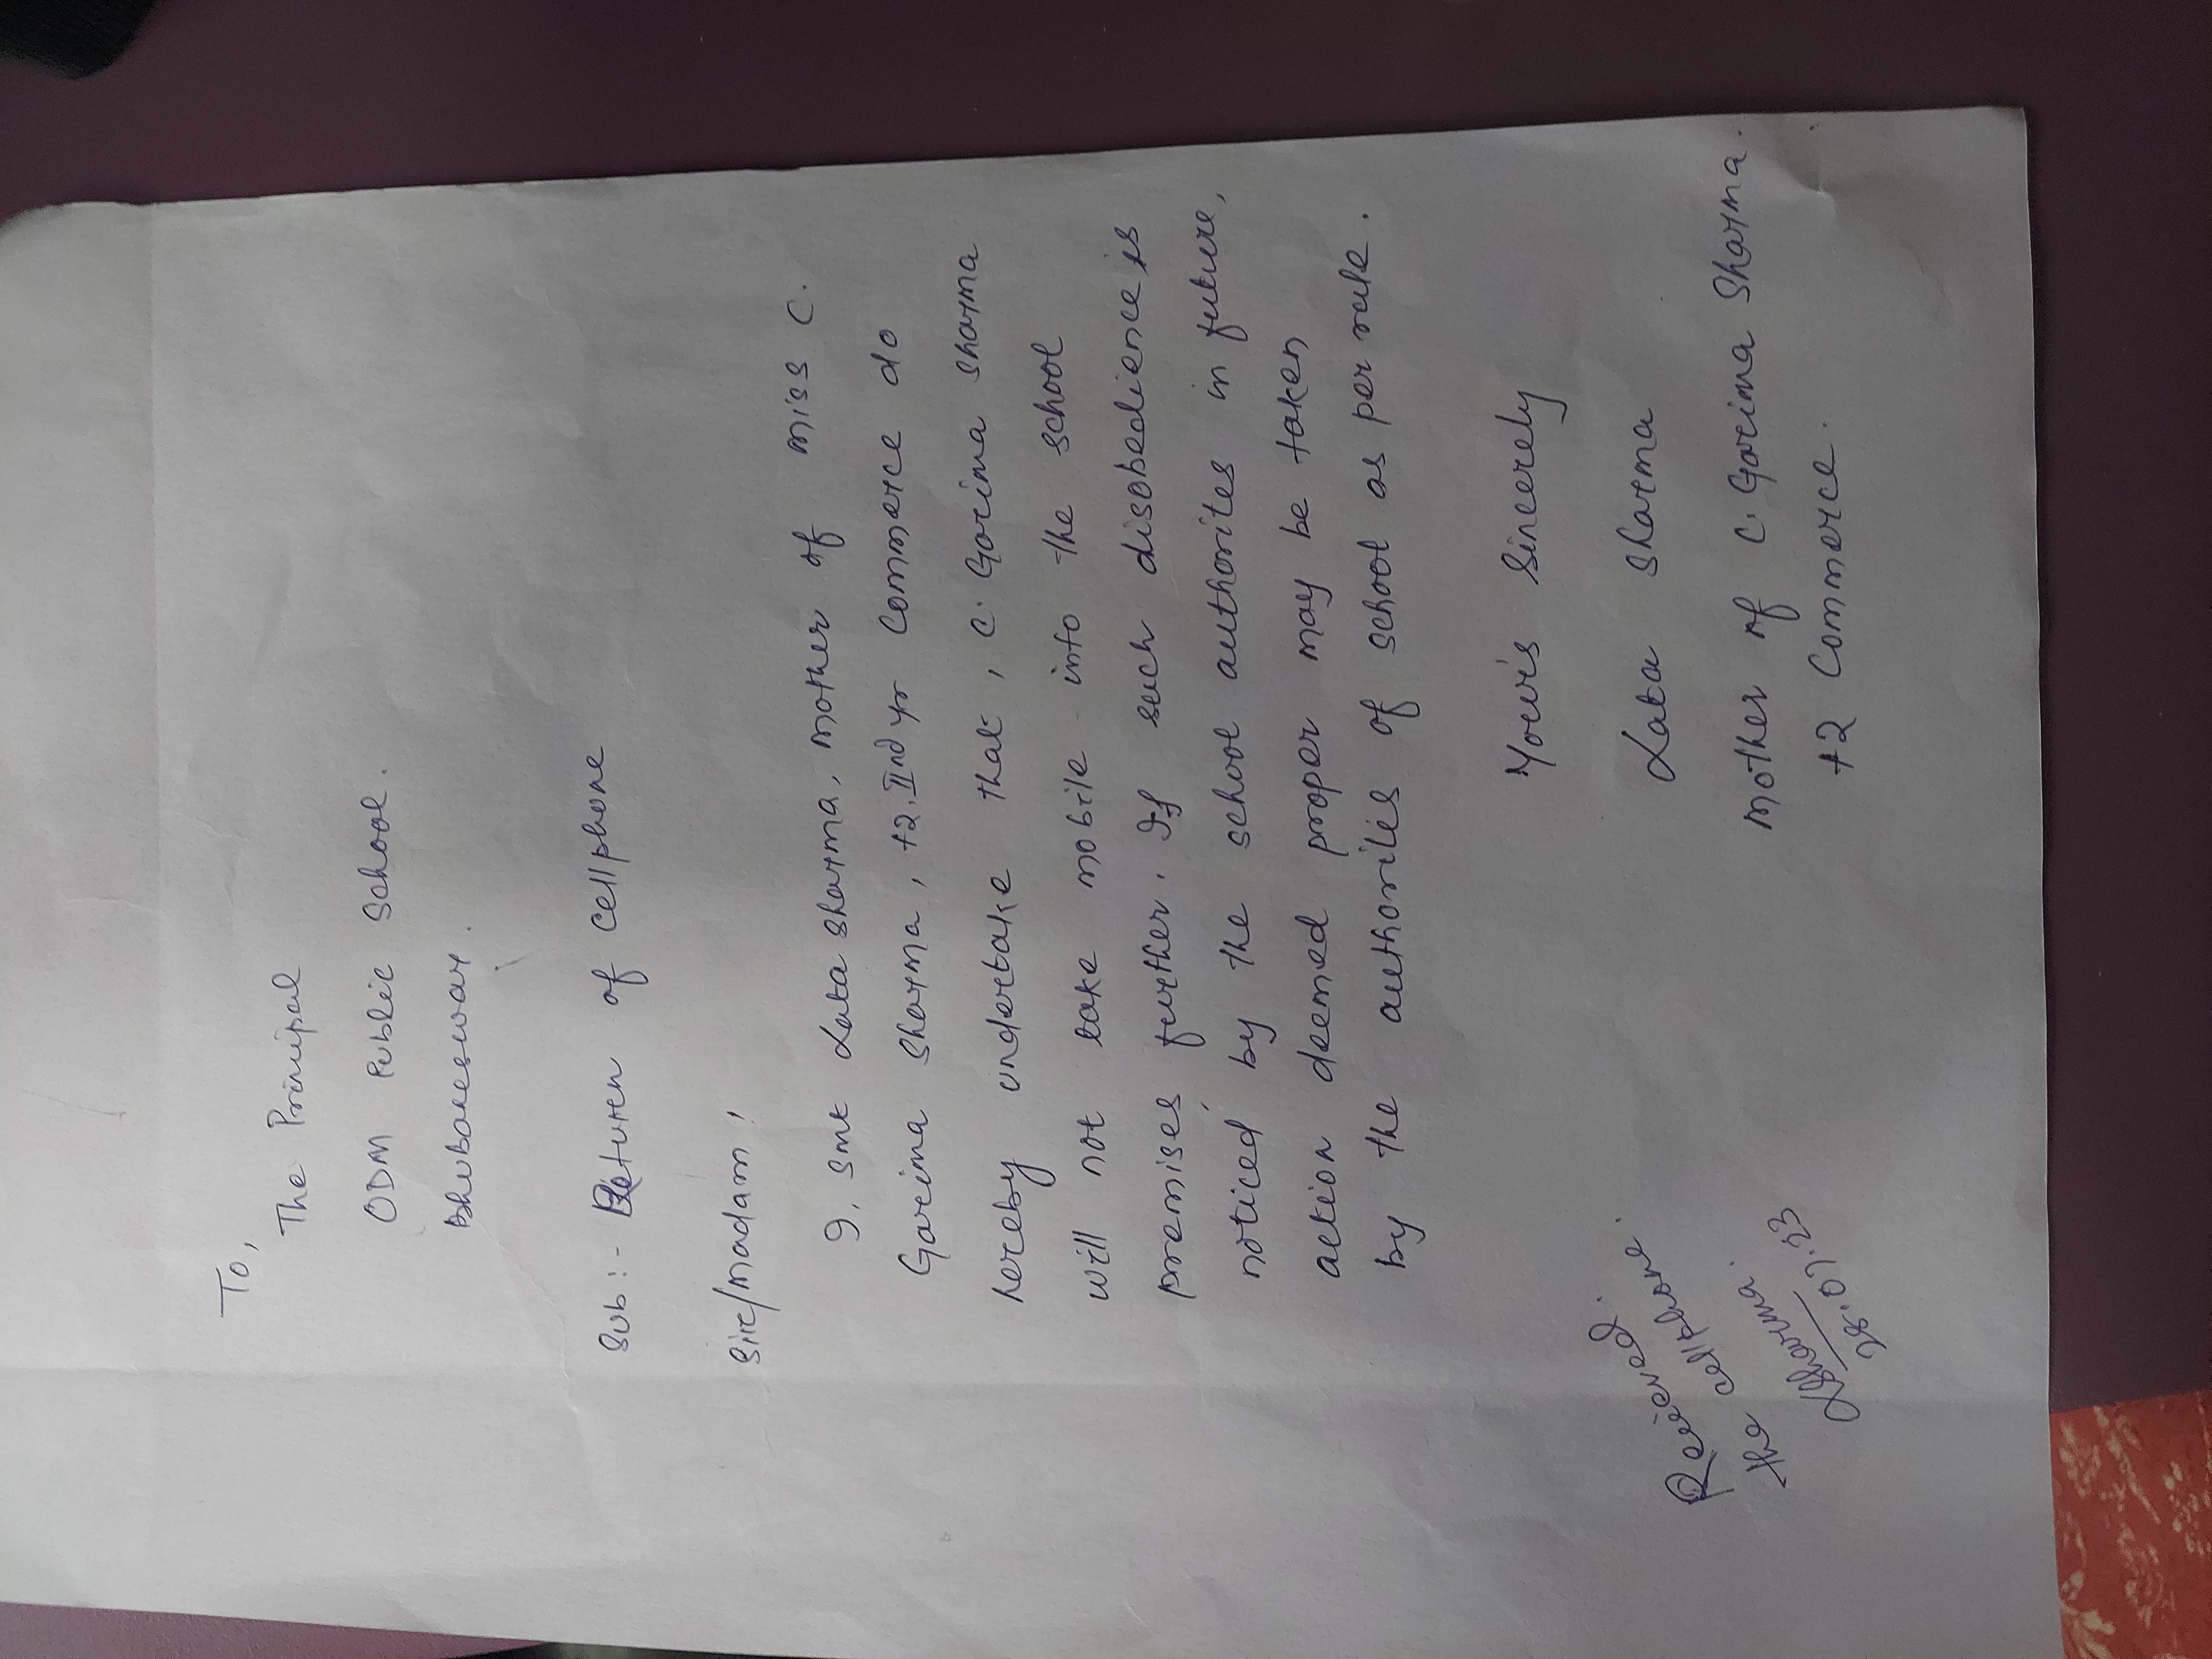 To,
The Principal
ODM Public School.
Bhubaneswar.
Sub:- Return of cellphone
Sir/Madam,
I, Smt Lata Sharma, mother of miss C.
Garima Sharma, +2.IInd yr Commerce do
hereby undertake that, C. Garima Sharma
will not take mobile into the school
premises further. If such disobedience is
noticed by the school authorites in future,
action deemed proper may be taken
by the authorities of school as per rule.
Yours Sincerely
Lata Sharma
Mother of C. Garima Sharma.
+2 Commerce.
Received.
the cellphone.
LSharma.
28.07.23